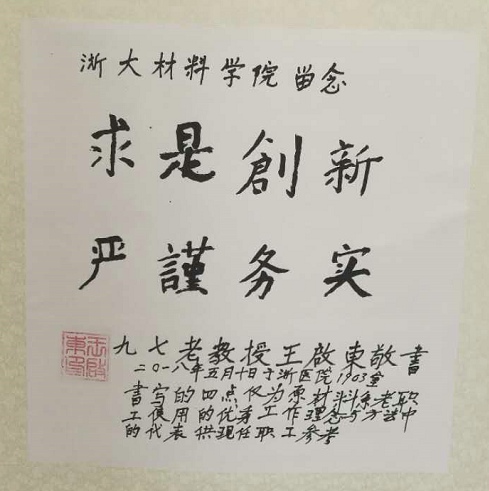 浙大材料学院 留念
求是創新
严謹务实
九七老教授王啟東敬書
二〇一八年五月十日于浙医院1903室
書写的四点仅为原材料系老职
工使用的优秀工作理念与方法中
的代表 供现任职工参考
王啟東印